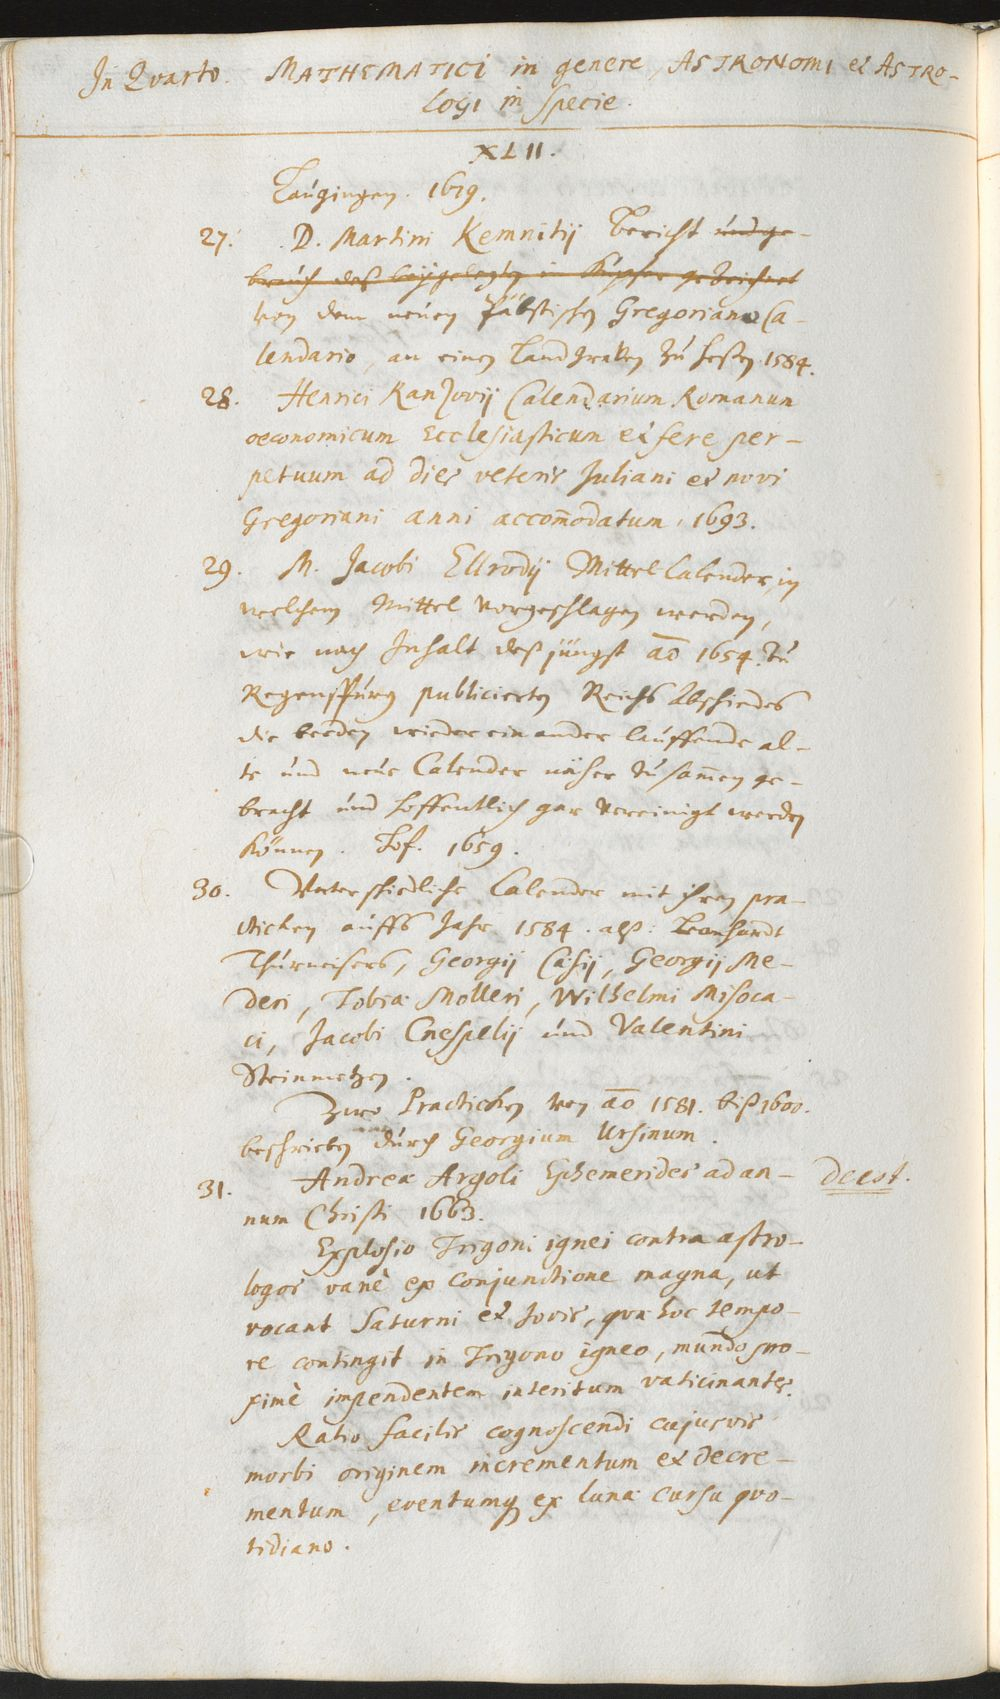 In Quarto. MATHEMATICI in genere, ASTRONOMI et ASTRO-
LOGI in specie.
XLII.
Laugingen. 1619.
27. D. Martini Kemnitij Bericht und ge-
brauch deß beÿgelegten in Kupfer gezeichnet
von dem neuen Päbstischen Gregoriano Ca-
lendario, an einen Landgraven zu Heßen 1584.
28. Henrici Ranzovij Calendarium Romanum
oeconomicum Ecclesiasticum et fere per-
petuum ad dies veteris Juliani et novi
Gregoriani anni accom̄odatum. 1693.
29. M. Jacobi Ellrodij Mittel Calender, in
welchem Mittel vorgeschlagen werden,
wie nach Inhalt deß jüngst ao 1654. zu
Regenspurg publicierten Reichs Abschiedes
die beeden wieder einander lauffende al-
te und neue Calender näher zusam̄en ge-
bracht und hoffentlich gar vereinigt werden
können. Hof. 1659.
30. Unterschiedliche Calender mit ihren pra-
cticken auffs Jahr 1584. alß: Leonhardt
Thurneisers, Georgij Casij, Georgij Me-
deri, Tobiæ Molleri, Wilhelmi Misoca-
ci, Jacobi Cnespelij und Valentini
Steinmetzen.
Zwo Practicken von ao 1581. biß 1600.
beschrieben durch Georgium Ursinum.
31. Andreæ Argoli Ephemerides ad an- deest.
num Christi 1663.
Explosio Trigoni ignei contra astro-
logos vanè ex conjunctione magna, ut
vocant Saturni et Jovis, quæ hoc tempo-
re contingit in Trigono igneo, mundo pro-
ximè impendentem interitum vaticinantes.
Ratio facilis cognoscendi cujusvis
morbi originem incrementum et decre-
mentum, eventumq ex lunæ cursu quo-
tidiano.